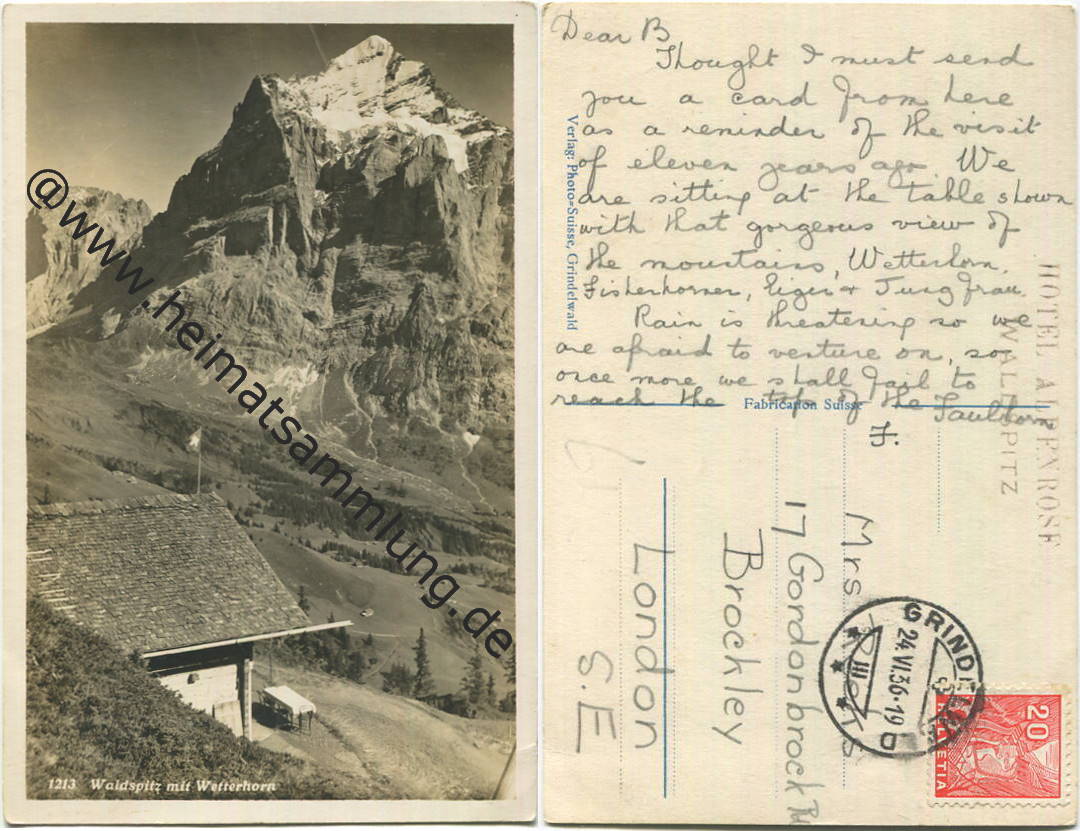 @www.heimatsammlung.de
1213 Waldspitz mit Wetterhorn
Dear B
Thought I must send
you a card from here
as a reminder of the visit
of eleven years ago We
are sitting at the table shown
with that gorgeous view of
the mountains, Wetterhorn,
Fisherhorner, Eiger & Jungfrau.
Rain is threatening so we
are afraid to venture on, so
once more we shall fail to
reach the top of the Faulhorn
Verlag: Photo=Suisse, Grindelwald
Fabrication Suisse
HOTEL ALPENROSE
WALDSPITZ
Mrs
17 Gordonbrock Rd
Brockley
London
S.E
GRINDELWALD
24.VI.36-19
III
20
HELVETIA